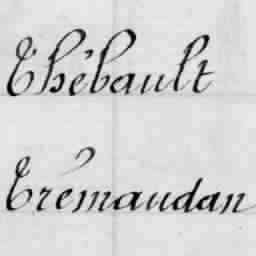 Thébault
Trémaudan